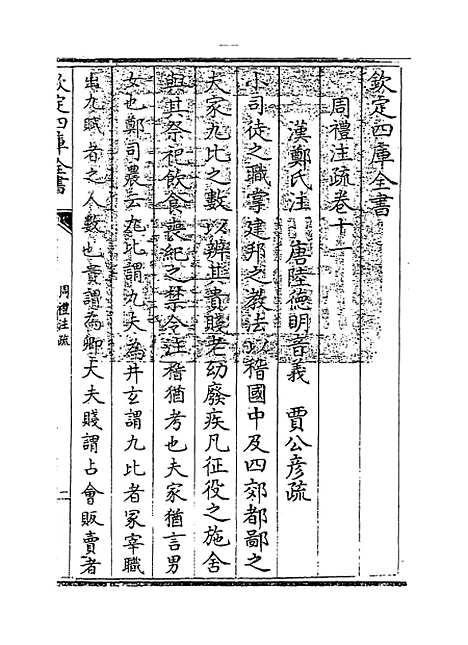 欽定四庫全書
周禮注疏卷十一
漢鄭氏注 唐陸德明音義 賈公彦疏
小司徒之職掌建邦之教法以稽國中及四郊都鄙之
夫家九比之數以辨其貴賤老幼廢疾凡征役之施舍
與其祭祀飲食喪紀之禁令注稽猶考也夫家猶言男
女也鄭司農云九比謂九夫為井玄謂九比者冢宰職
出九賦者之人數也貴謂為卿大夫賤謂占會販賣者
欽定四庫全書
周禮注疏
一